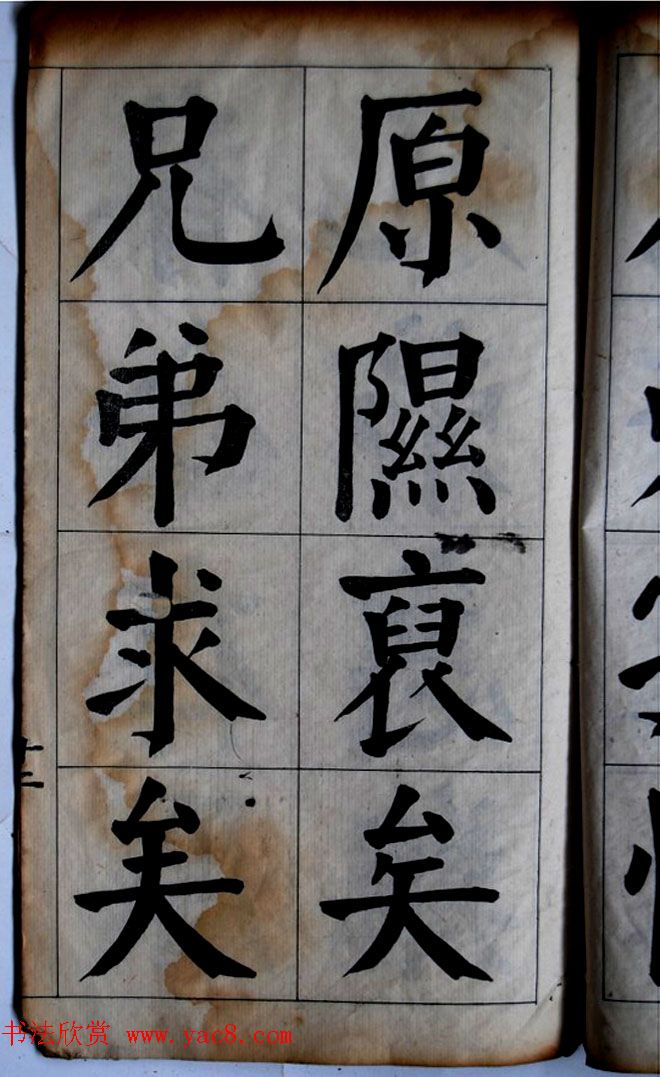 原隰裒矣
兄弟求矣
十三
书法欣赏 www.yac8.com